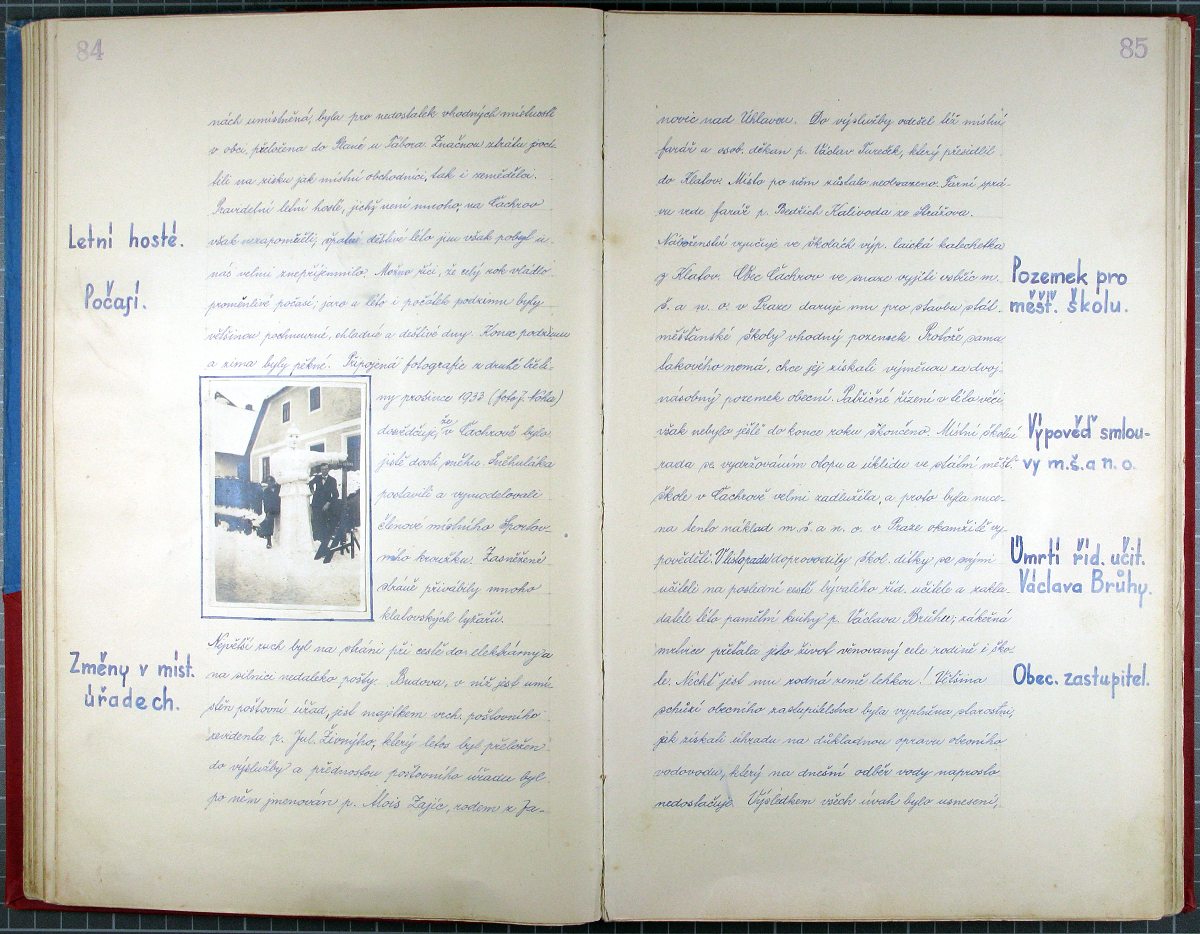 84
nách umístněná, byla pro nedostatek vhodných místností
v obci, přeložena do Plané u Tábora. Značnou ztrátu poci-
tili na zisku jak místní obchodníci, tak i zemědělci.
Letní hosté.
Pravidelní letní hosté, jichž není mnoho, na Čachrov
však nezapomněli; špatné deštivé léto jim však pobyt u
Počasí.
nás velmi znepříjemnilo. Možno říci, že celý rok vládlo
proměnlivé počasí; jaro a léto i počátek podzimu byly
většinou pochmurné, chladné a deštivé dny. Konec podzimu
a zima byly pěkné. Připojená fotografie z druhé třeti-
ny prosince 1933 (foto J.
dosvědčuje, že v Čachrově bylo
jistě dosti sněhu. Sněhuláka
postavili a vymodelovali
členové místního Sportov-
ního kroužku. Zasněžené
stráně přivábily mnoho
klatovských lyžařů.
Největší ruch byl na stráni při cestě do elektrárny a
Změny v míst.
na silnici nedaleko pošty. Budova, v níž jest umí-
úřadech.
stěn poštovní úřad, jest majetkem vrch. poštovního
revidenta p. Jul. Živnýho, který letos byl přeložen
do výslužby a přednostou poštovního úřadu byl
po něm jmenován p. Alois Zajíc, rodem z Ja-
85
novic nad Úhlavou. Do výslužby odešel též místní
farář a osob. děkan p. Václav Tureček, který přesídlil
do Klatov. Místo po něm zůstalo neobsazeno. Farní sprá-
vu vede farář p. Bedřich Kalivoda ze Strážova.
Náboženství vyučuje ve školách výp. laická katechetka
Pozemek pro
z Klatov. Obec Čachrov ve snaze vyjíti vstříc m.
měšť. školu.
š. a n. o. v Praze daruje mu pro stavbu stát.
měšťanské školy vhodný pozemek. Protože sama
takového nemá, chce jej získati výměnou za dvoj-
násobný pozemek obecní. Patřičné řízení v této věci
však nebylo ještě do konce roku skončeno. Místní školní
Výpověď smlou-
rada se vydržováním otopu a úklidu ve státní měšť.
vy m.š. a n. o.
škole v Čachrově velmi zadlužila, a proto byla nuce-
na tento náklad m. š. a n. o. v Praze okamžitě vy-
Úmrtí říd. učit.
pověděti. V listopadu doprovodily škol. dítky se svými
Václava Brůhy.
učiteli na poslední cestě bývalého říd. učitele a zakla-
datele této pamětní knihy p. Václava Brůhu; zákeřná
mrtvice přeťala jeho život věnovaný cele rodině i ško-
Obec. zastupitel.
le. Nechť jest mu rodná země lehkou! Většina
schůzí obecního zastupitelstva byla vyplněna starostmi,
jak získati úhradu na důkladnou opravu obecního
vodovodu, který na dnešní odběr vody naprosto
nedostačuje. Výsledkem všech úvah bylo usnesení,